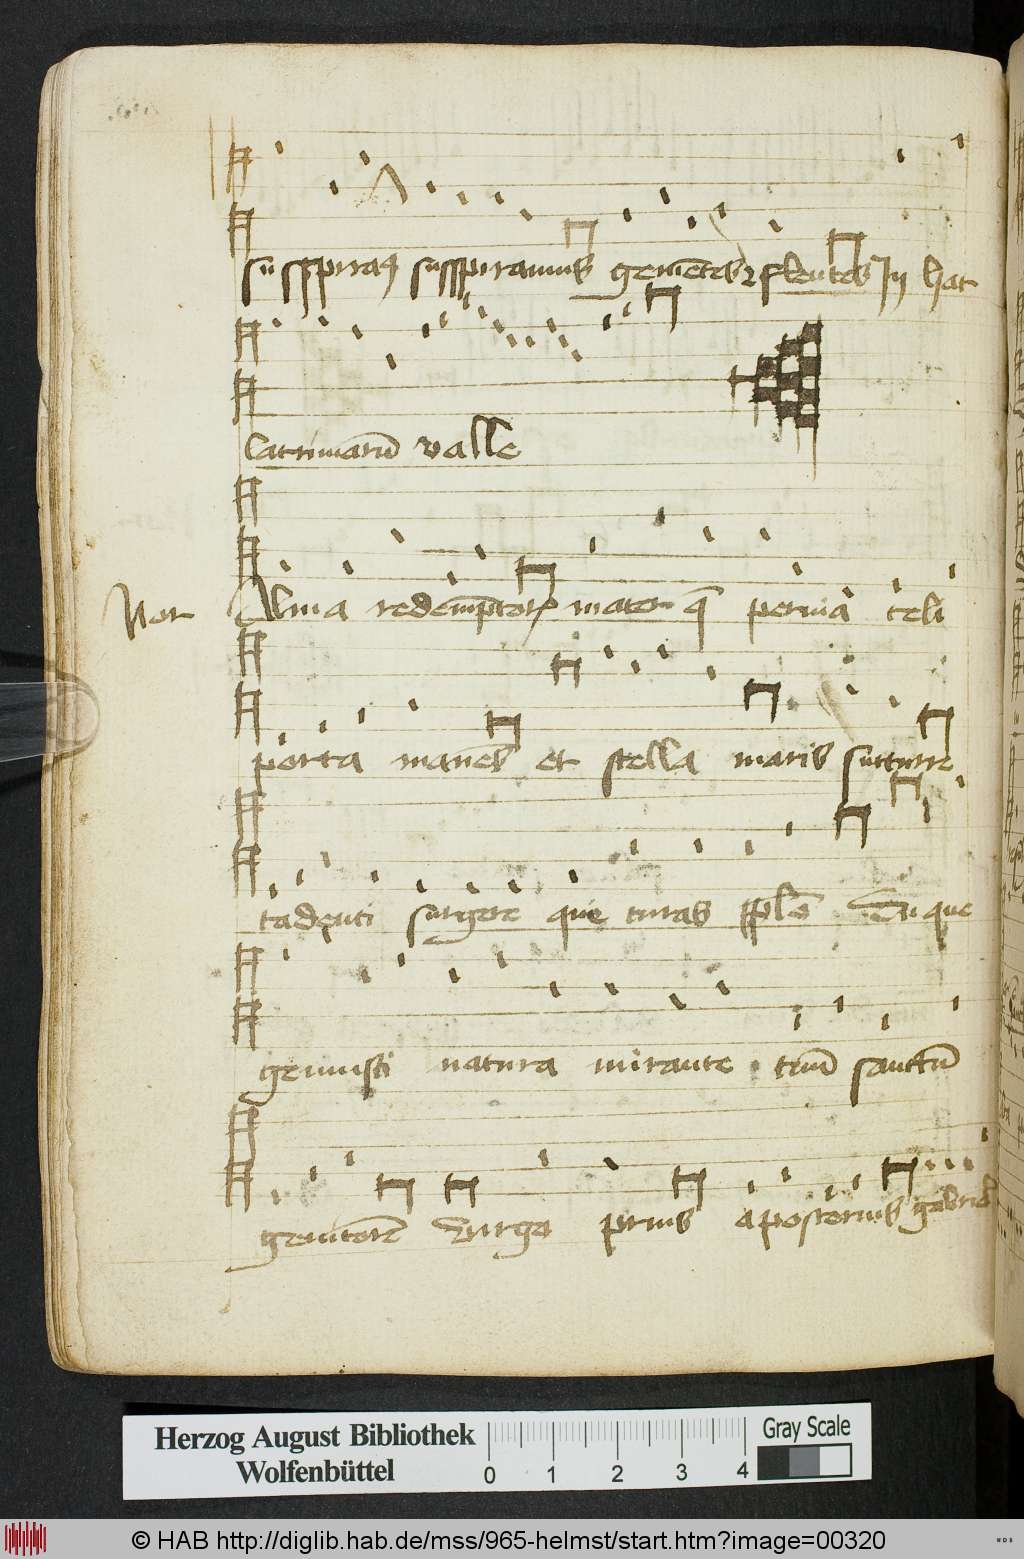 susspiraꝫ susspiramus gemētes ⁊ flentes In hac
lacrimarū valle
Alma redemptor⁊ mater q̄ pervia celi
porta manēs et stella maris succurre
cadenti surgere qui curas pplō Tu que
genuisti natura mirante tuū sanctū
genitorē virgo prius a posterius gabriel
Herzog August Bibliothek
Wolfenbüttel
0 1 2 3 4
Gray Scale
© HAB http://diglib.hab.de/mss/965-helmst/start.htm?image=00320